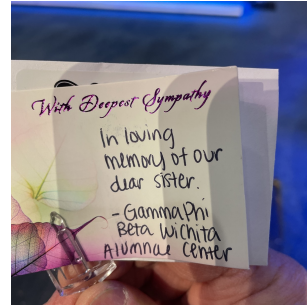 With Deepest Sympathy
In loving
memory of our
dear sister.
-Gamma Phi
Beta Wichita
Alumnae Center